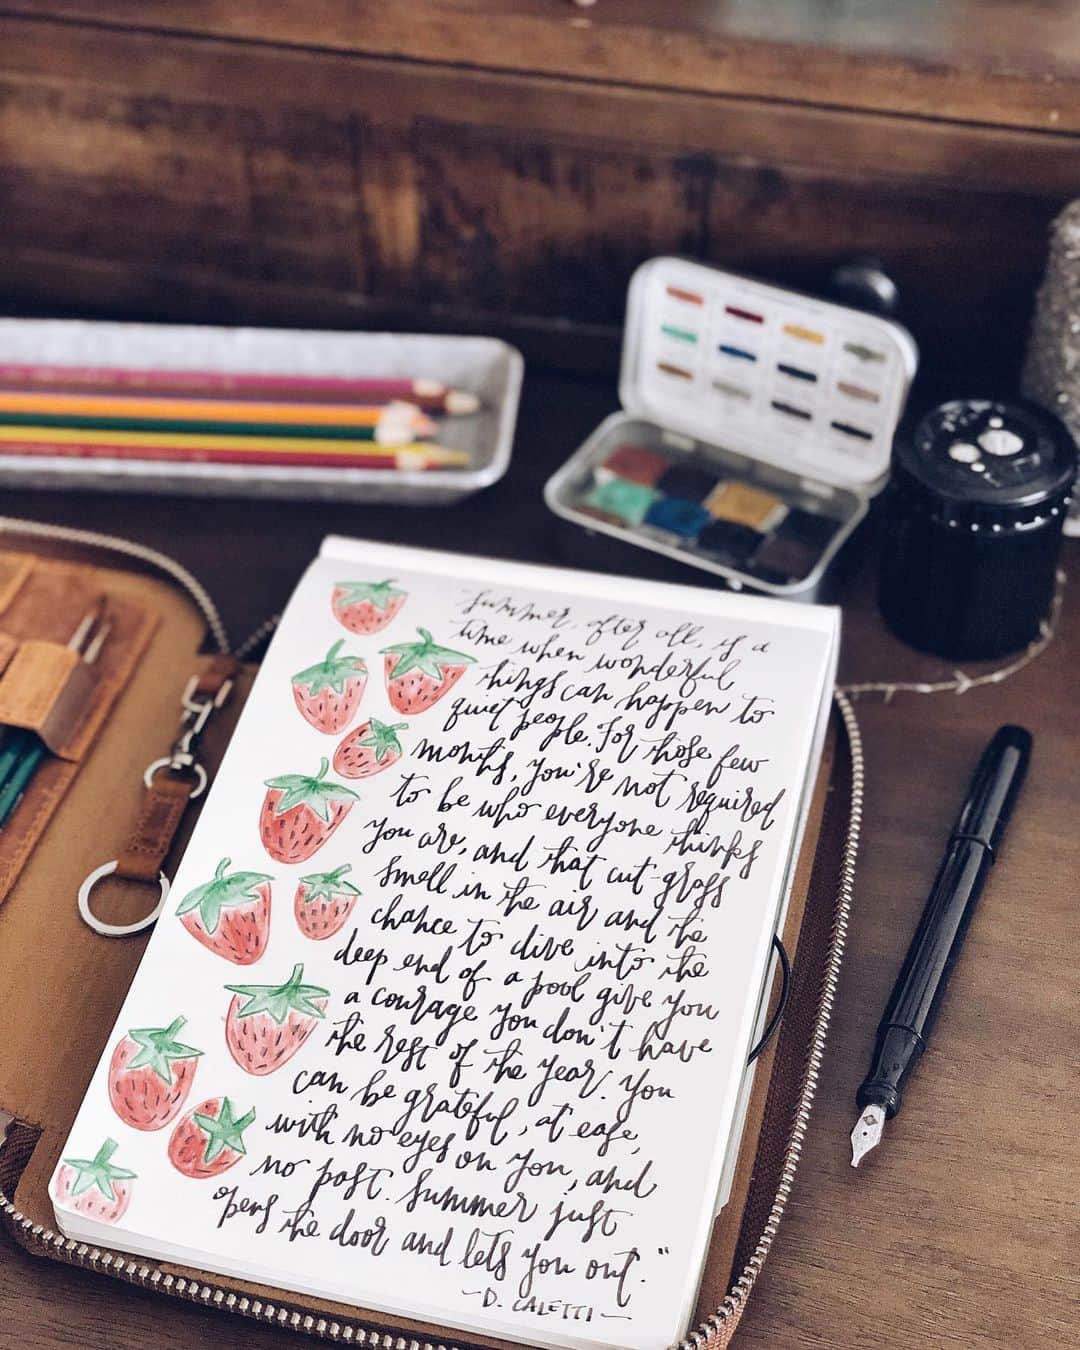 "Summer, after all, is a
time when wonderful
things can happen to
quiet people. For those few
months, you're not required
to be who everyone thinks
you are, and that cut-grass
smell in the air and the
chance to dive into the
deep end of a pool give you
a courage you don't have
the rest of the year. You
can be grateful, at ease,
with no eyes on you, and
no past. Summer just
opens the door and lets you out."
- D. CALETTI -